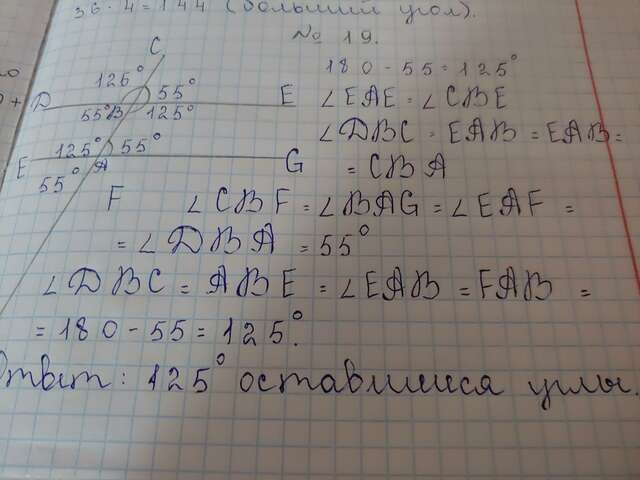 36·4=144 (больший угол).
№ 19.
C
125° 55°
D E
55° B 125°
125° 55°
E A G
55°
F
180-55=125°
∠EAE=∠CBE
∠DBC=EAB=EAB=
=CBA
∠CBF=∠BAG=∠EAF=
=∠DBA=55°
∠DBC=ABE=∠EAB=FAB=
=180-55=125°.
Ответ: 125° оставшиеся углы.